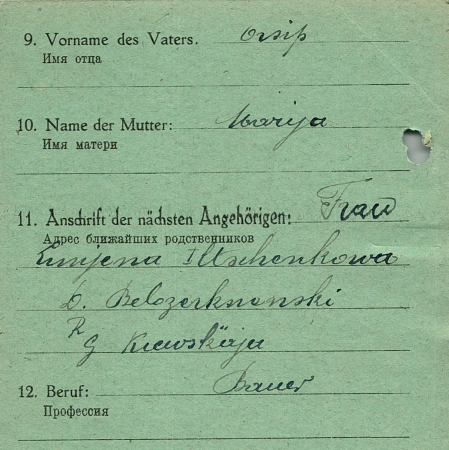 9. Vorname des Vaters. Ossip
Имя отца
10. Name der Mutter: Marija
Имя матери
11. Anschrift der nächsten Angehörigen: Frau
Адрес ближайших родственников
Iltschenkowa
D.
R
G Kiewskaja
12. Beruf: Bauer
Профессия